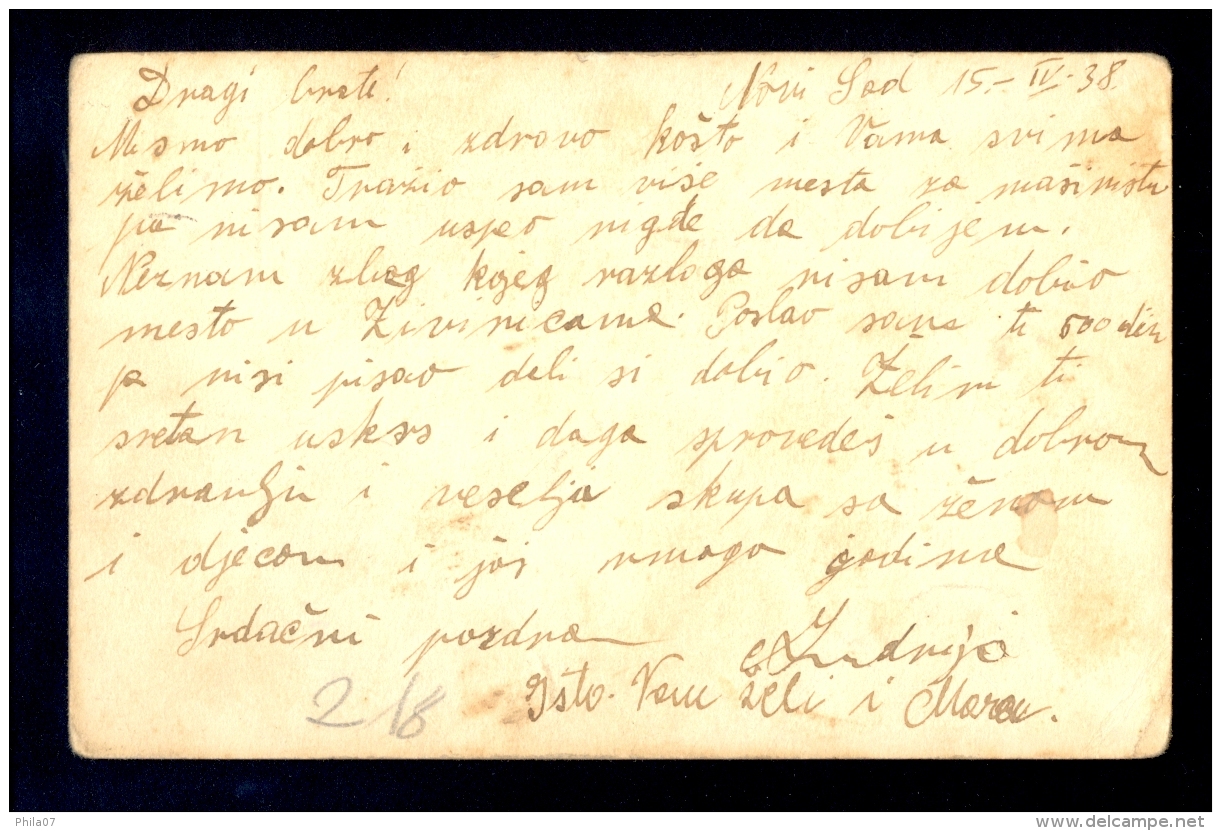 Dragi brate! Novi Sad 15.-IV-38.
Mi smo dobro i zdrovo košto i Vama svima
želimo. Tražio sam više mesta za mašinistu
pa nisam uspeo nigde da dobijem.
Neznam zbog kojeg razloga nisam dobio
mesto u Živinicama. Poslao sam ti 500 din
pa nisi pisao dali si dobio. Želim ti
sretan uskrs i daga sprovedeš u dobrom
zdravlju i veselju skupa sa ženom
i djecom i još mnogo godina
Srdačni pozdrav Andrija
Isto Vam želi i
2/8
Phila07
www.delcampe.net